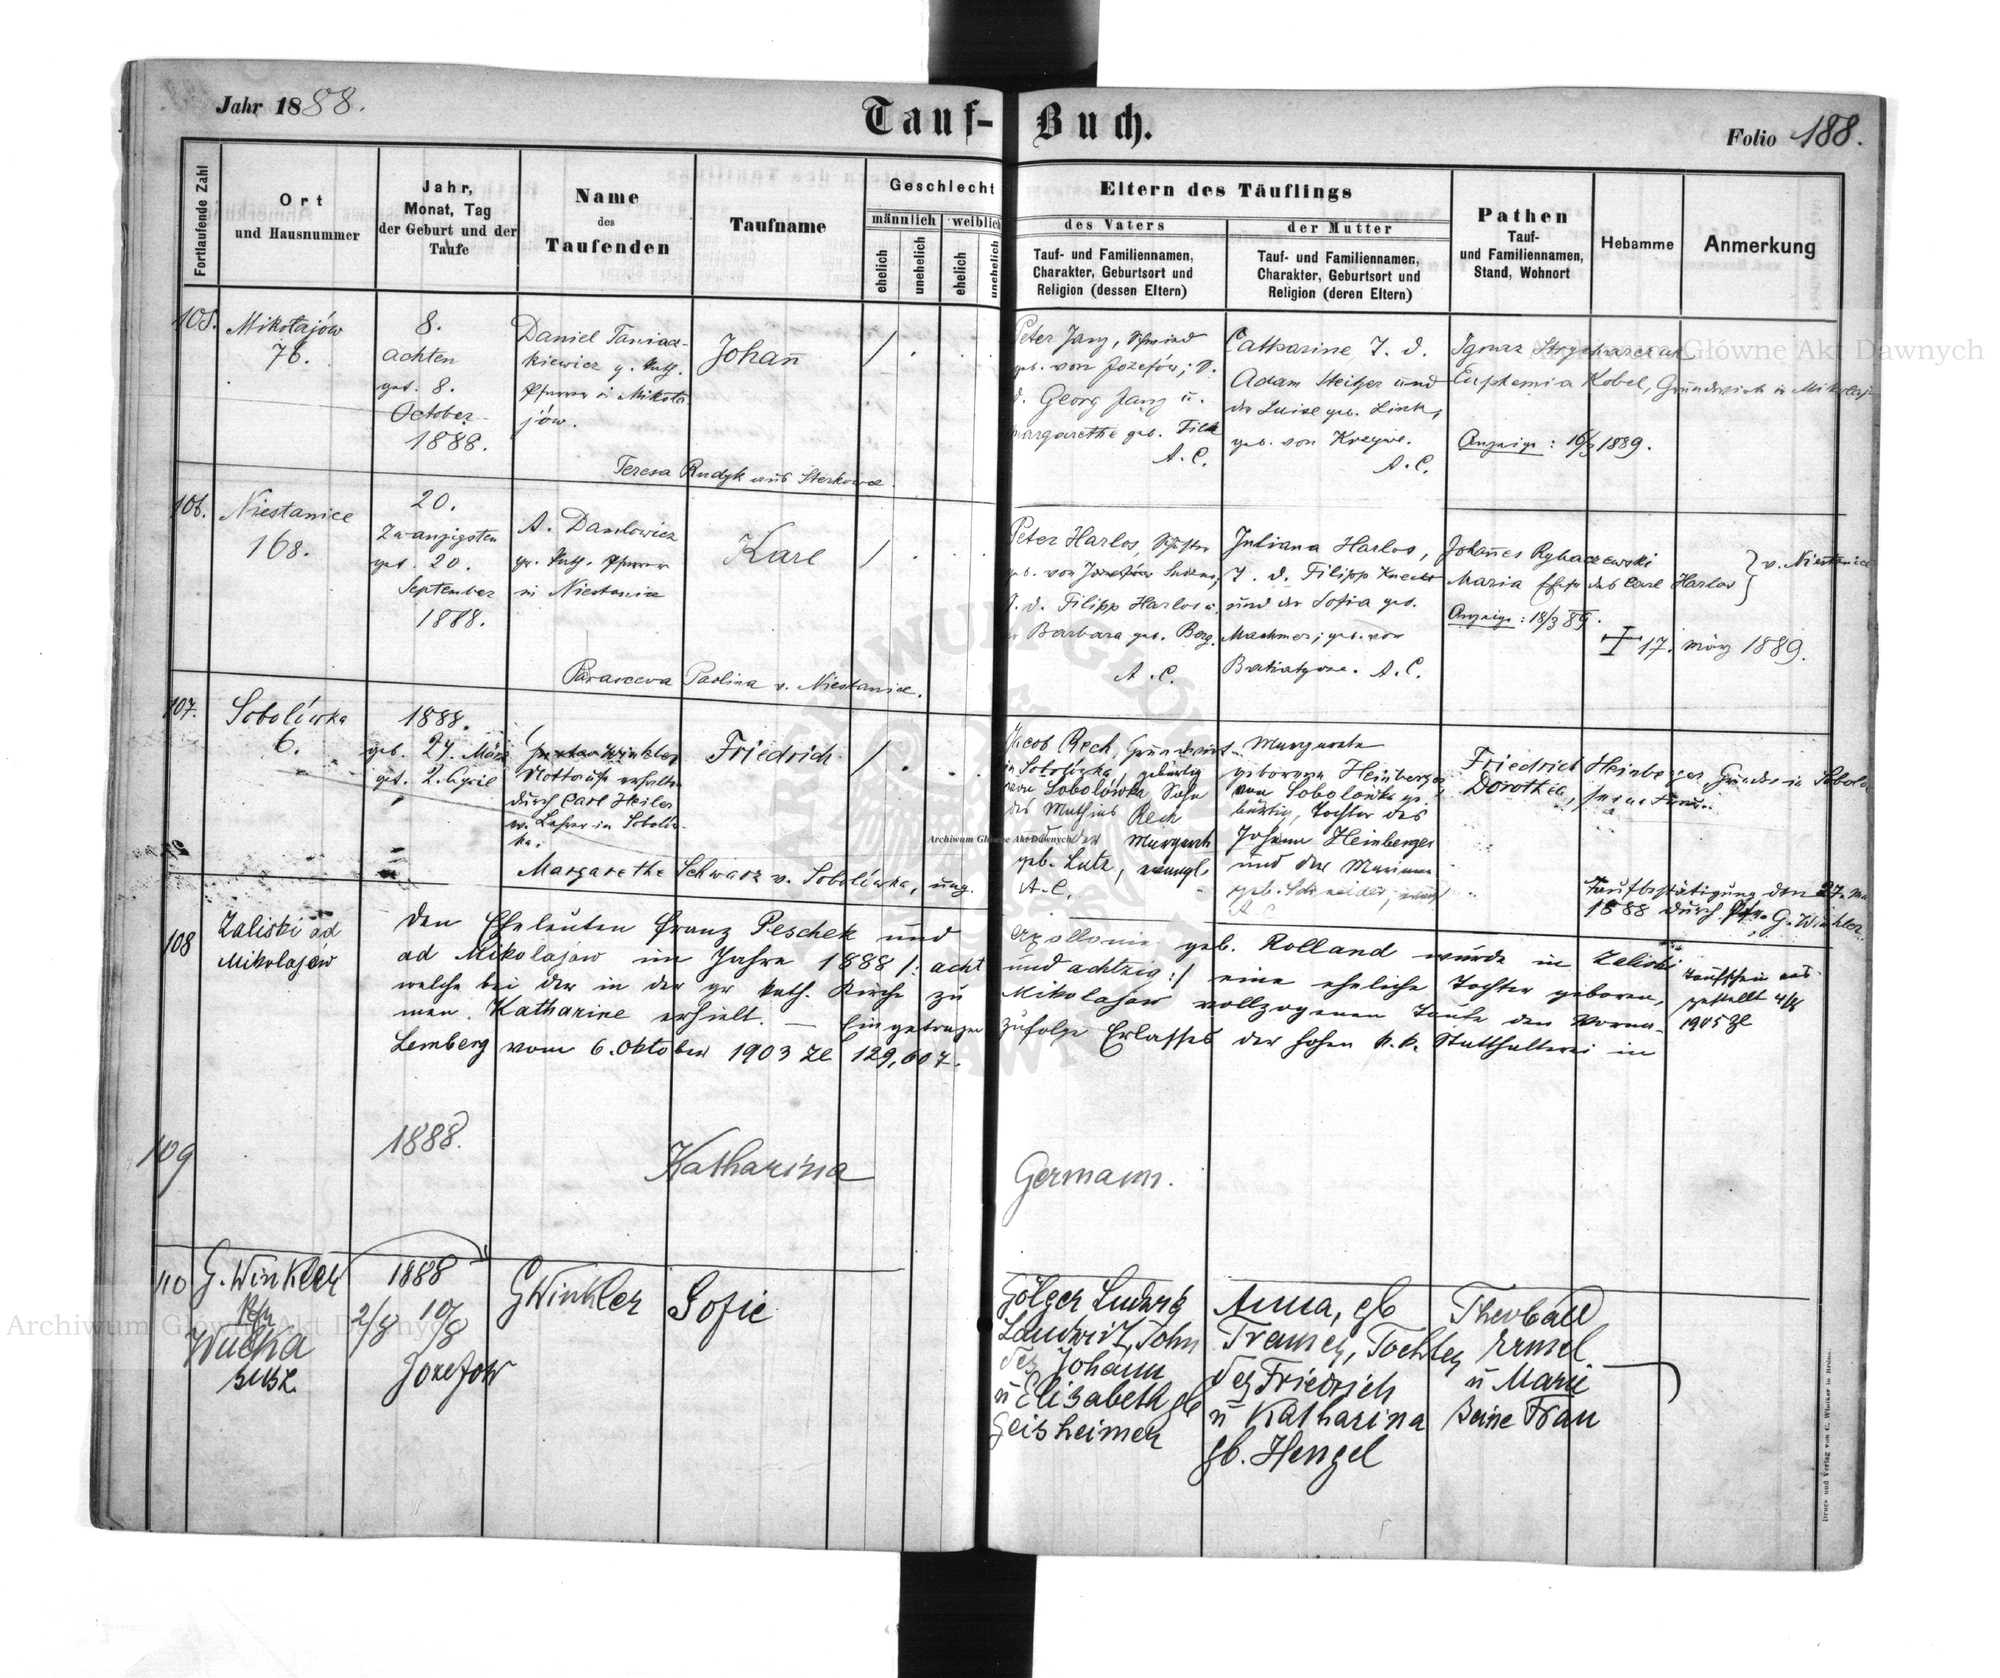 Jahr 1888.
Tauf-Buch.
Folio 188.
Fortlaufende Zahl
Ort
und Hausnummer
Jahr,
Monat, Tag
der Geburt und der
Taufe
Name
des
Taufenden
Taufname
Geschlecht
männlich
weiblich
ehelich
unehelich
ehelich
unehelich
Eltern des Täuflings
des Vaters
Tauf- und Familiennamen,
Charakter, Geburtsort und
Religion (dessen Eltern)
der Mutter
Tauf- und Familiennamen,
Charakter, Geburtsort und
Religion (deren Eltern)
Pathen
Tauf-
und Familiennamen,
Stand, Wohnort
Hebamme
Anmerkung
105.
Mikołajów
76.
8.
achten
get. 8.
October
1888.
Daniel
kiewicz g. kath.
Pfarrer in Mikoła-
jów.
Johann
/
Peter Jany, Schmied
geb. von Józefów; S.
d. Georg Jany u.
Margarethe geb. Filk
A. C.
Catharine, T. d.
Adam Steitzer und
der Luise geb. Link,
geb. von
A. C.
Ignaz
Euphemia Kobel, Grundwirth in
Anzeige: 16/3 1889.
Teresa Rudyk aus
106.
Niestanice
168.
20.
Zwanzigsten
get. 20.
September
1888.
A. Danlowicz
gr. kath. Pfarrer
in Niestanice
Karl
/
Peter Harlos,
geb. von
S. d. Filipp Harlos u.
Barbara geb. Berg.
A. C.
Juliana Harlos,
T. d. Filipp Knecht
und der Sofia geb.
Machmer; geb. von
A. C.
Johannes Rybaczewski
Maria Ehefr. des Carl Harlos
v. Niestanice
Anzeige: 18/3 89.
17. März 1889.
Parasceva Paolina v. Niestanice.
107.
Sobolówka
6.
1888.
geb. 27. März
get. 2. April
Gustav Winkler
Nottaufe erhalten
durch Carl Heiler
Lehrer in Sobolów-
ka.
Friedrich
/
Jacob Rech, Grundwirt
in Sobolówka, gebürtig
von Sobolówka Sohn
des Mathias Rech
und der Margareth
geb. Lutz, evangl.
A. C.
Margareta
geborene Heinberger
von Sobolowka ge-
bürtig, Tochter des
Johann Heinberger
und der Mariana
geb. Schneider,
A C
Friedrich Heinberger, in
Dorothea, seine Frau
Margarethe Schwarz v. Sobolówka,
Taufbestätigung den 27.
1888 durch Pfr. G. Winkler
108
Zaliski ad
Mikolajów
Den Eheleuten Franz Peschek und Apollonie geb. Rolland wurde in Zeliski
ad Mikolajow im Jahre 1888 /: acht und achtzig :/ eine eheliche Tochter geboren,
welche bei der in der gr kath. Kirche zu Mikolajow vollzogenen Taufe den Vorna-
men Katharine erhielt. — Eingetragen zufolge Erlasses der hohen k. k. Statthalterei in
Lemberg vom 6. Oktober 1903 Zl 129,607.
Taufschein aus-
gestellt
1905
109
1888.
Katharina
Germann.
110
G. Winkler
Pfr
1888
2/8 10/8
Jozefow
G Winkler
Sofie
Gölger Ludwig
Landwirt, Sohn
des Johann
u Elisabeth gb
Geisheimer
Anna, gb
Tramer, Tochter
des Friedrich
u Katharina
gb. Hengel
Theobald
Ermel
u Marie
seine Frau
Druck und Verlag von C. Winiker in Brünn.
Archiwum Główne Akt Dawnych
Archiwum Główne Akt Dawnych
Archiwum Główne Akt Dawnych